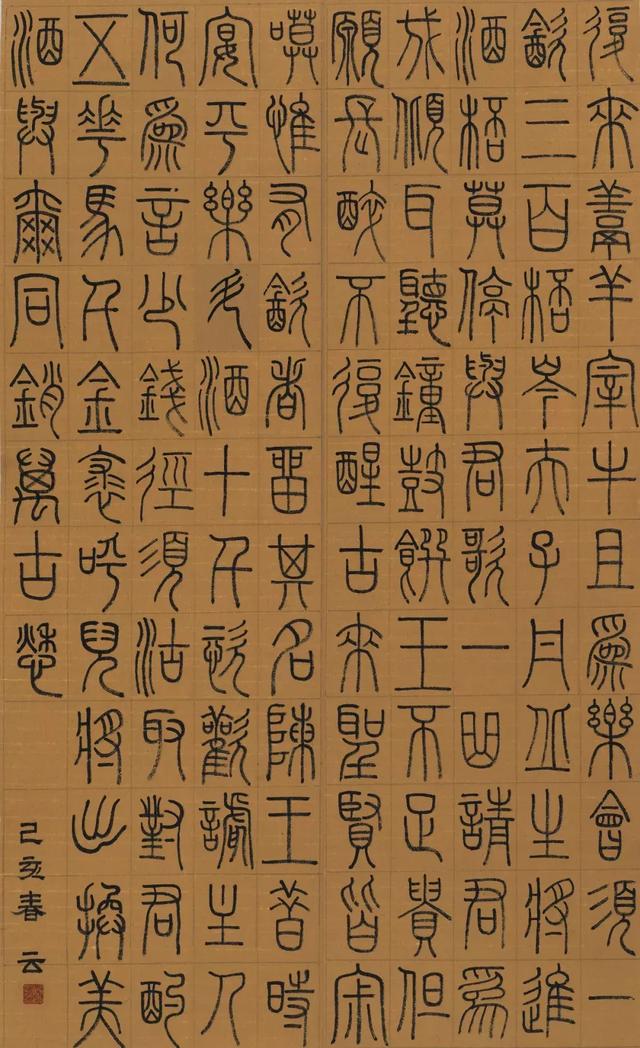 復來羊宰牛且為樂會須一
飲三百桮岑夫子丹丘生將進
酒桮莫停與君歌一曲請君為
我傾耳聽鐘鼓饌玉不足貴但
願長醉不復醒古來聖賢皆寂
嗼惟有飲者留其名陳王昔時
宴平樂斗酒十千恣歡謔主人
何為言少錢徑須沽取對君酌
五花馬千金裘呼兒將出換美
酒與爾同銷萬古愁
己亥春 云